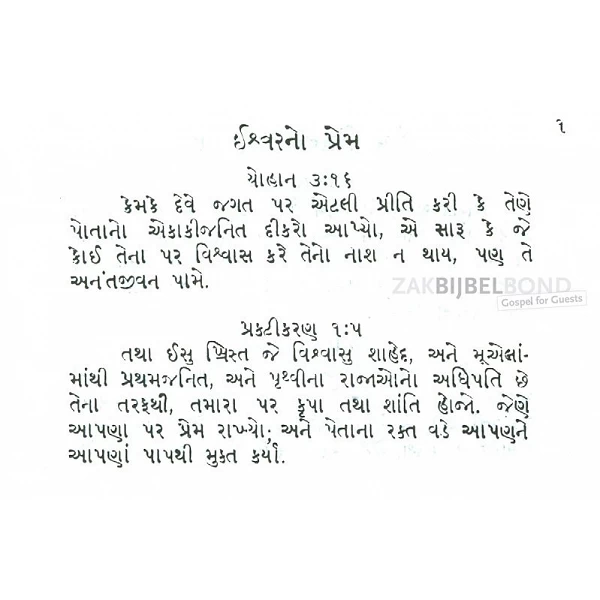 ૧
ઈશ્વરનો પ્રેમ
યોહાન ૩:૧૬
કેમકે દેવે જગત પર એટલી પ્રીતિ કરી કે તેણે
પોતાનો એકાકીજનિત દીકરો આપ્યો, એ સારૂ કે જે
કોઈ તેના પર વિશ્વાસ કરે તેનો નાશ ન થાય, પણ તે
અનંતજીવન પામે.
ZAKBIJBELBOND
Gospel for Guests
પ્રકટીકરણ ૧:૫
તથા ઈસુ ખ્રિસ્ત જે વિશ્વાસુ શાહેદ, અને મૂએલાં-
માંથી પ્રથમજનિત, અને પૃથ્વીના રાજાઓનો અધિપતિ છે
તેના તરફથી, તમારા પર કૃપા તથા શાંતિ હોજો. જેણે
આપણા પર પ્રેમ રાખ્યો; અને પેતાના રક્ત વડે આપણને
આપણાં પાપથી મુક્ત કર્યાં.